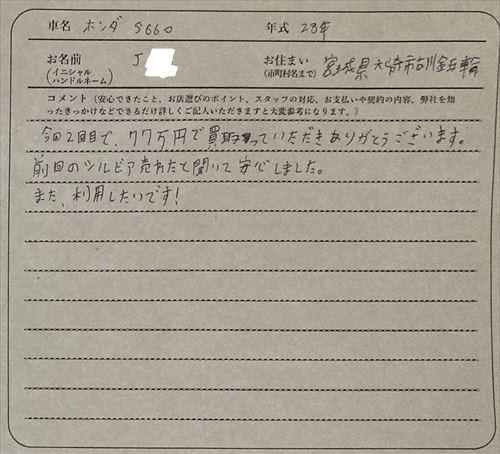 車名 ホンダ S660 年式 28年
お名前 J お住まい 宮城県大崎市古川金五輪
(イニシャル (市町村名まで)
ハンドルネーム)
コメント (安心できたこと、お店選びのポイント、スタッフの対応、お支払いや契約の内容、弊社を知
ったきっかけなどできるだけ詳しくご記入いただきますと大変参考になります。)
今回2回目で、77万円で買取っていただきありがとうございます。
前回のシルビア売れたと聞いて安心しました。
また、利用したいです!